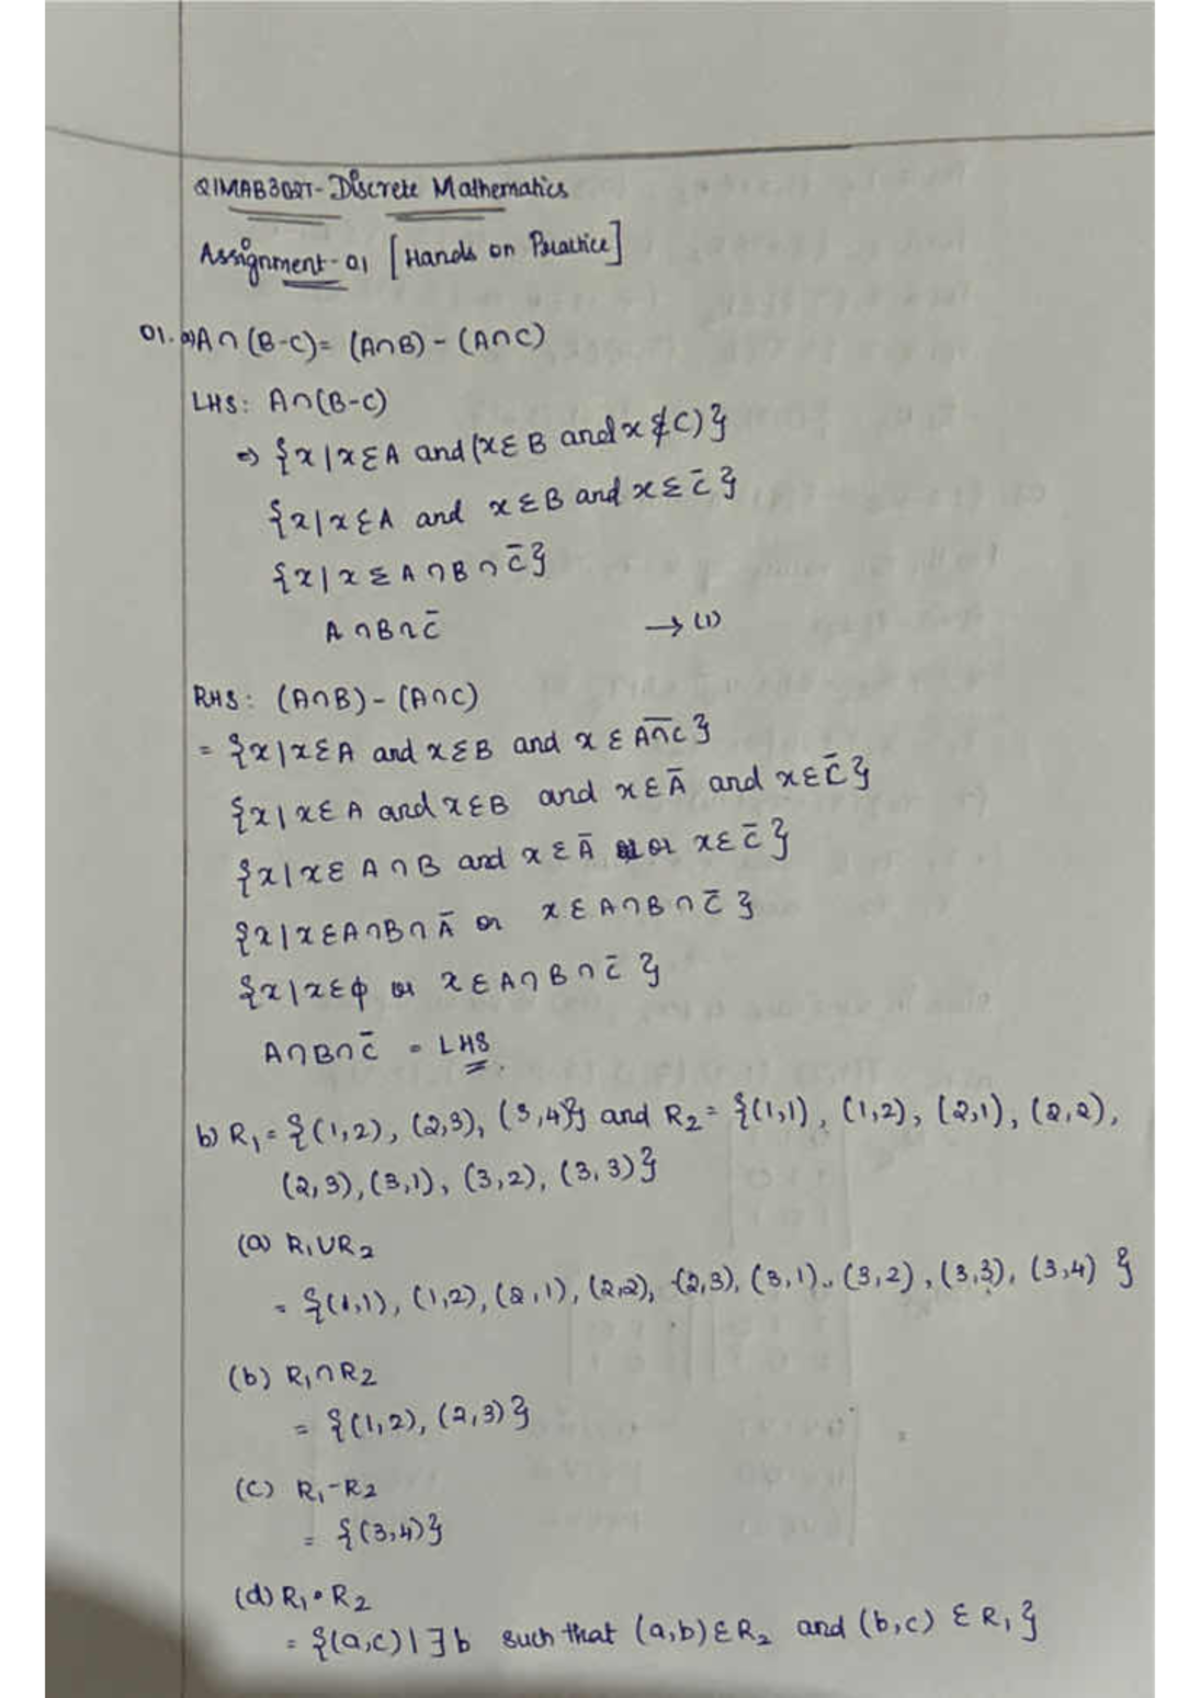 21MAB302T - Discrete Mathematics
Assignment - 01 [Hands on Practice]
01. a) A ∩ (B-C) = (A∩B) - (A∩C)
LHS: A∩(B-C)
⇒ {x | x ∈ A and (x ∈ B and x ∉ C)}
{x | x ∈ A and x ∈ B and x ∈ C̄}
{x | x ∈ A ∩ B ∩ C̄}
A ∩ B ∩ C̄ → (1)
RHS: (A∩B) - (A∩C)
= {x | x ∈ A and x ∈ B and x ∈ A̅∩̅C̅}
{x | x ∈ A and x ∈ B and x ∈ Ā and x ∈ C̄}
{x | x ∈ A ∩ B and x ∈ Ā or x ∈ C̄}
{x | x ∈ A∩B∩Ā or x ∈ A∩B∩C̄}
{x | x ∈ ϕ or x ∈ A∩B∩C̄}
A∩B∩C̄ = LHS
b) R₁ = {(1,2), (2,3), (3,4)} and R₂ = {(1,1), (1,2), (2,1), (2,2),
(2,3), (3,1), (3,2), (3,3)}
(a) R₁∪R₂
= {(1,1), (1,2), (2,1), (2,2), (2,3), (3,1), (3,2), (3,3), (3,4)}
(b) R₁∩R₂
= {(1,2), (2,3)}
(c) R₁-R₂
= {(3,4)}
(d) R₁∘R₂
= {(a,c) | ∃ b such that (a,b) ∈ R₂ and (b,c) ∈ R₁}